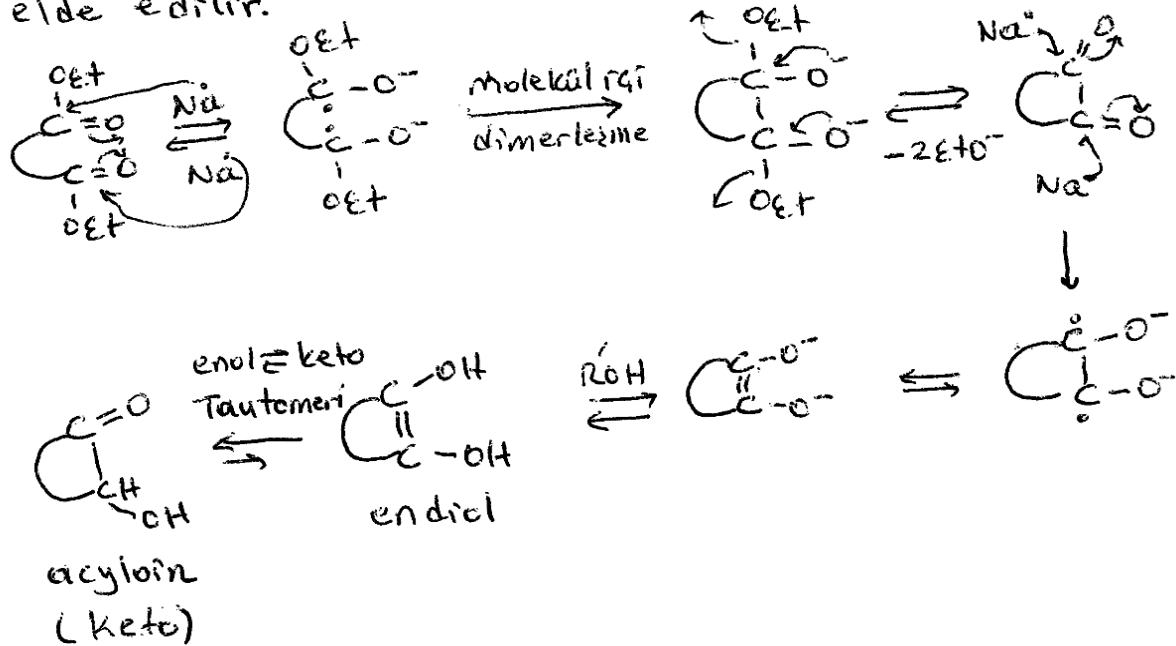 elde edilir.
OEt
C=O
C=O
OEt
Na
Na
OEt
C-O⁻
C-O⁻
OEt
molekül içi
dimerleşme
OEt
C-O⁻
C-O⁻
OEt
-2EtO⁻
Na
C=O
C=O
Na
C-O⁻
C-O⁻
C-O⁻
C-O⁻
R'OH
C-OH
C-OH
endiol
enol⇌keto
Tautomeri
C=O
CH
OH
acyloin
(keto)